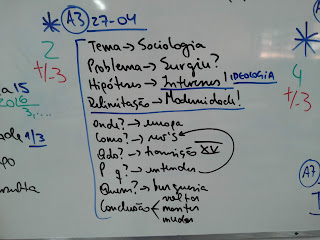 * A3 27-04
2
+/-3
Tema → Sociologia
Problema → Surgiu?
Hipótese → Interesses! IDEOLOGIA
Delimitação → Modernidade!
Onde? → europa
Como? → rev's
Qdo? → transição XV
P q? → entender
Quem? → burguesia
Conclusão voltar
manter
mudar
a 15
2016
3,...
A/3
*
4
+/-3
A7